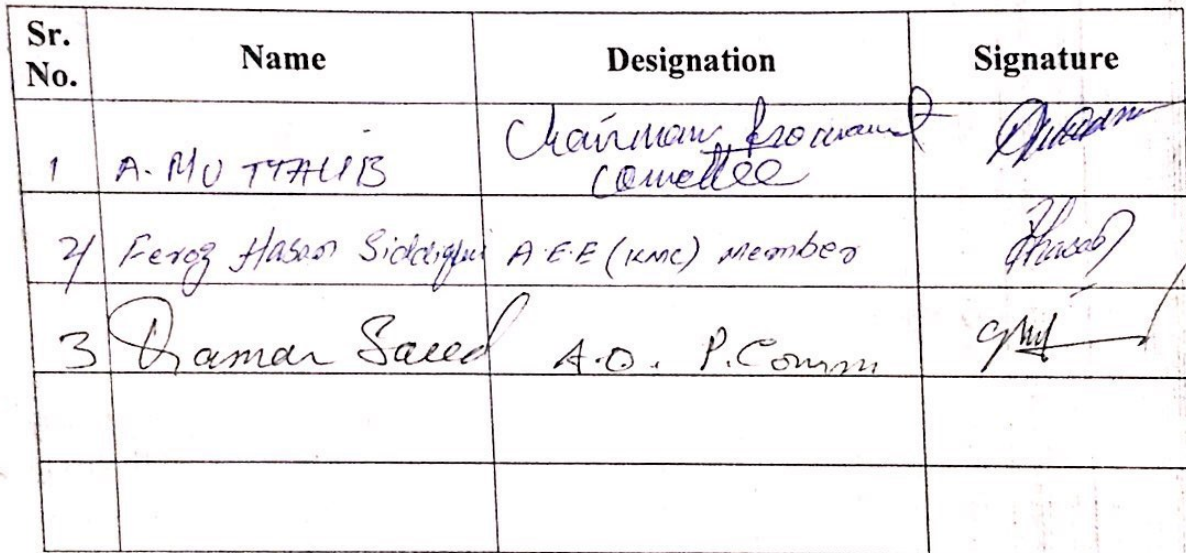 Sr. No. Name Designation Signature
1 A. MUTTALIB Chairman Procurment Comettee
2/ Feroz Hasan Siddiqui A.E.E (KMC) Member
3 Qamar Saeed A.O. P. Comm